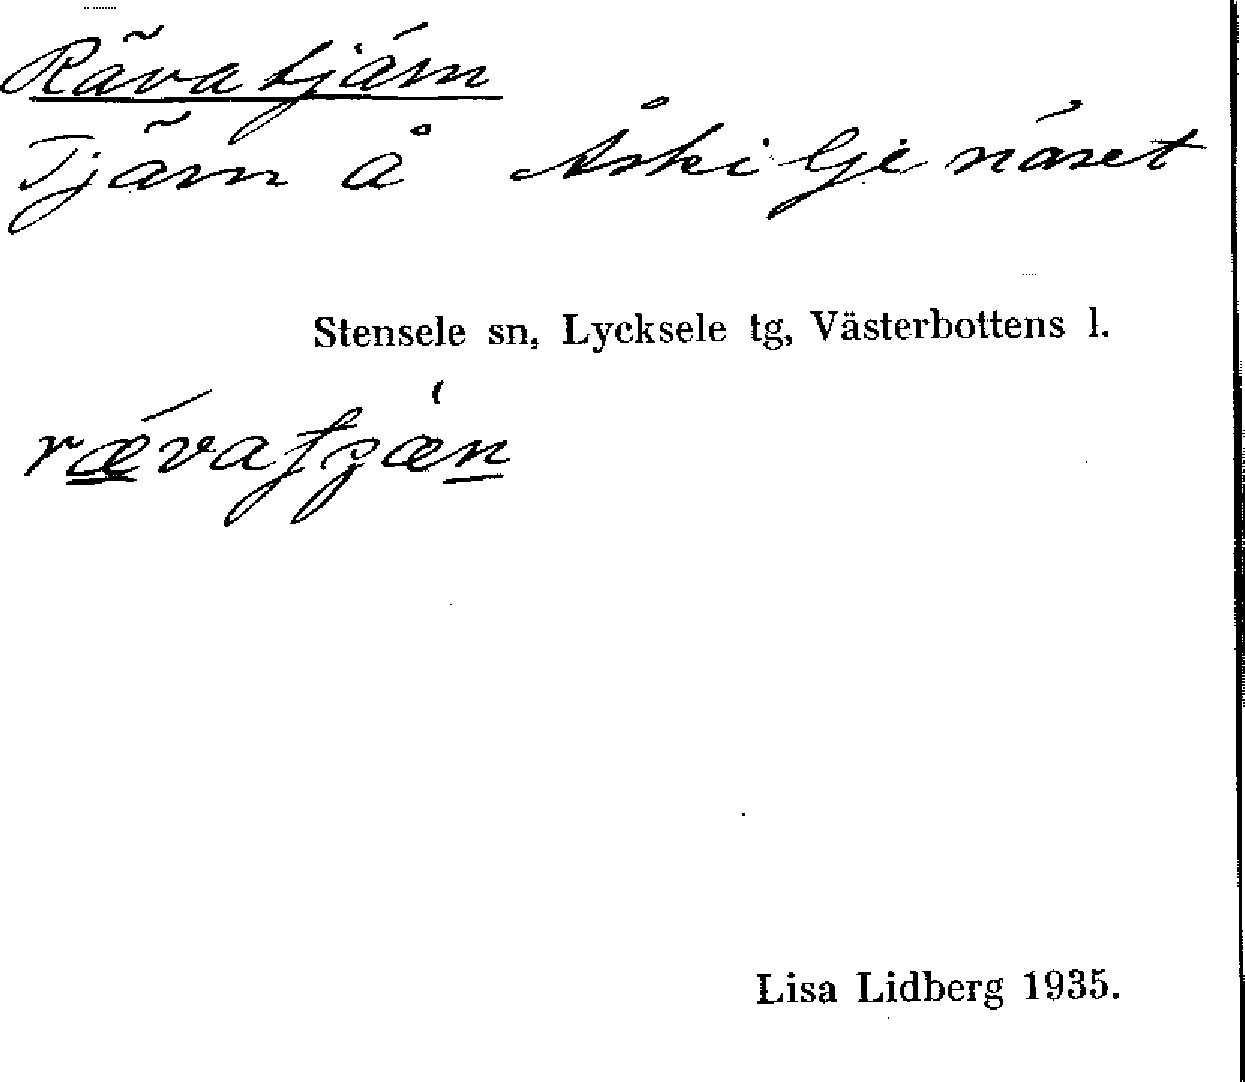 Rävatjärn
Tjärn å Åskiljenäset
Stensele sn, Lycksele tg, Västerbottens l.
Lisa Lidberg 1935.